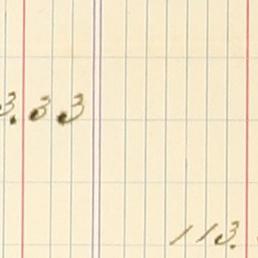 3.33
113.